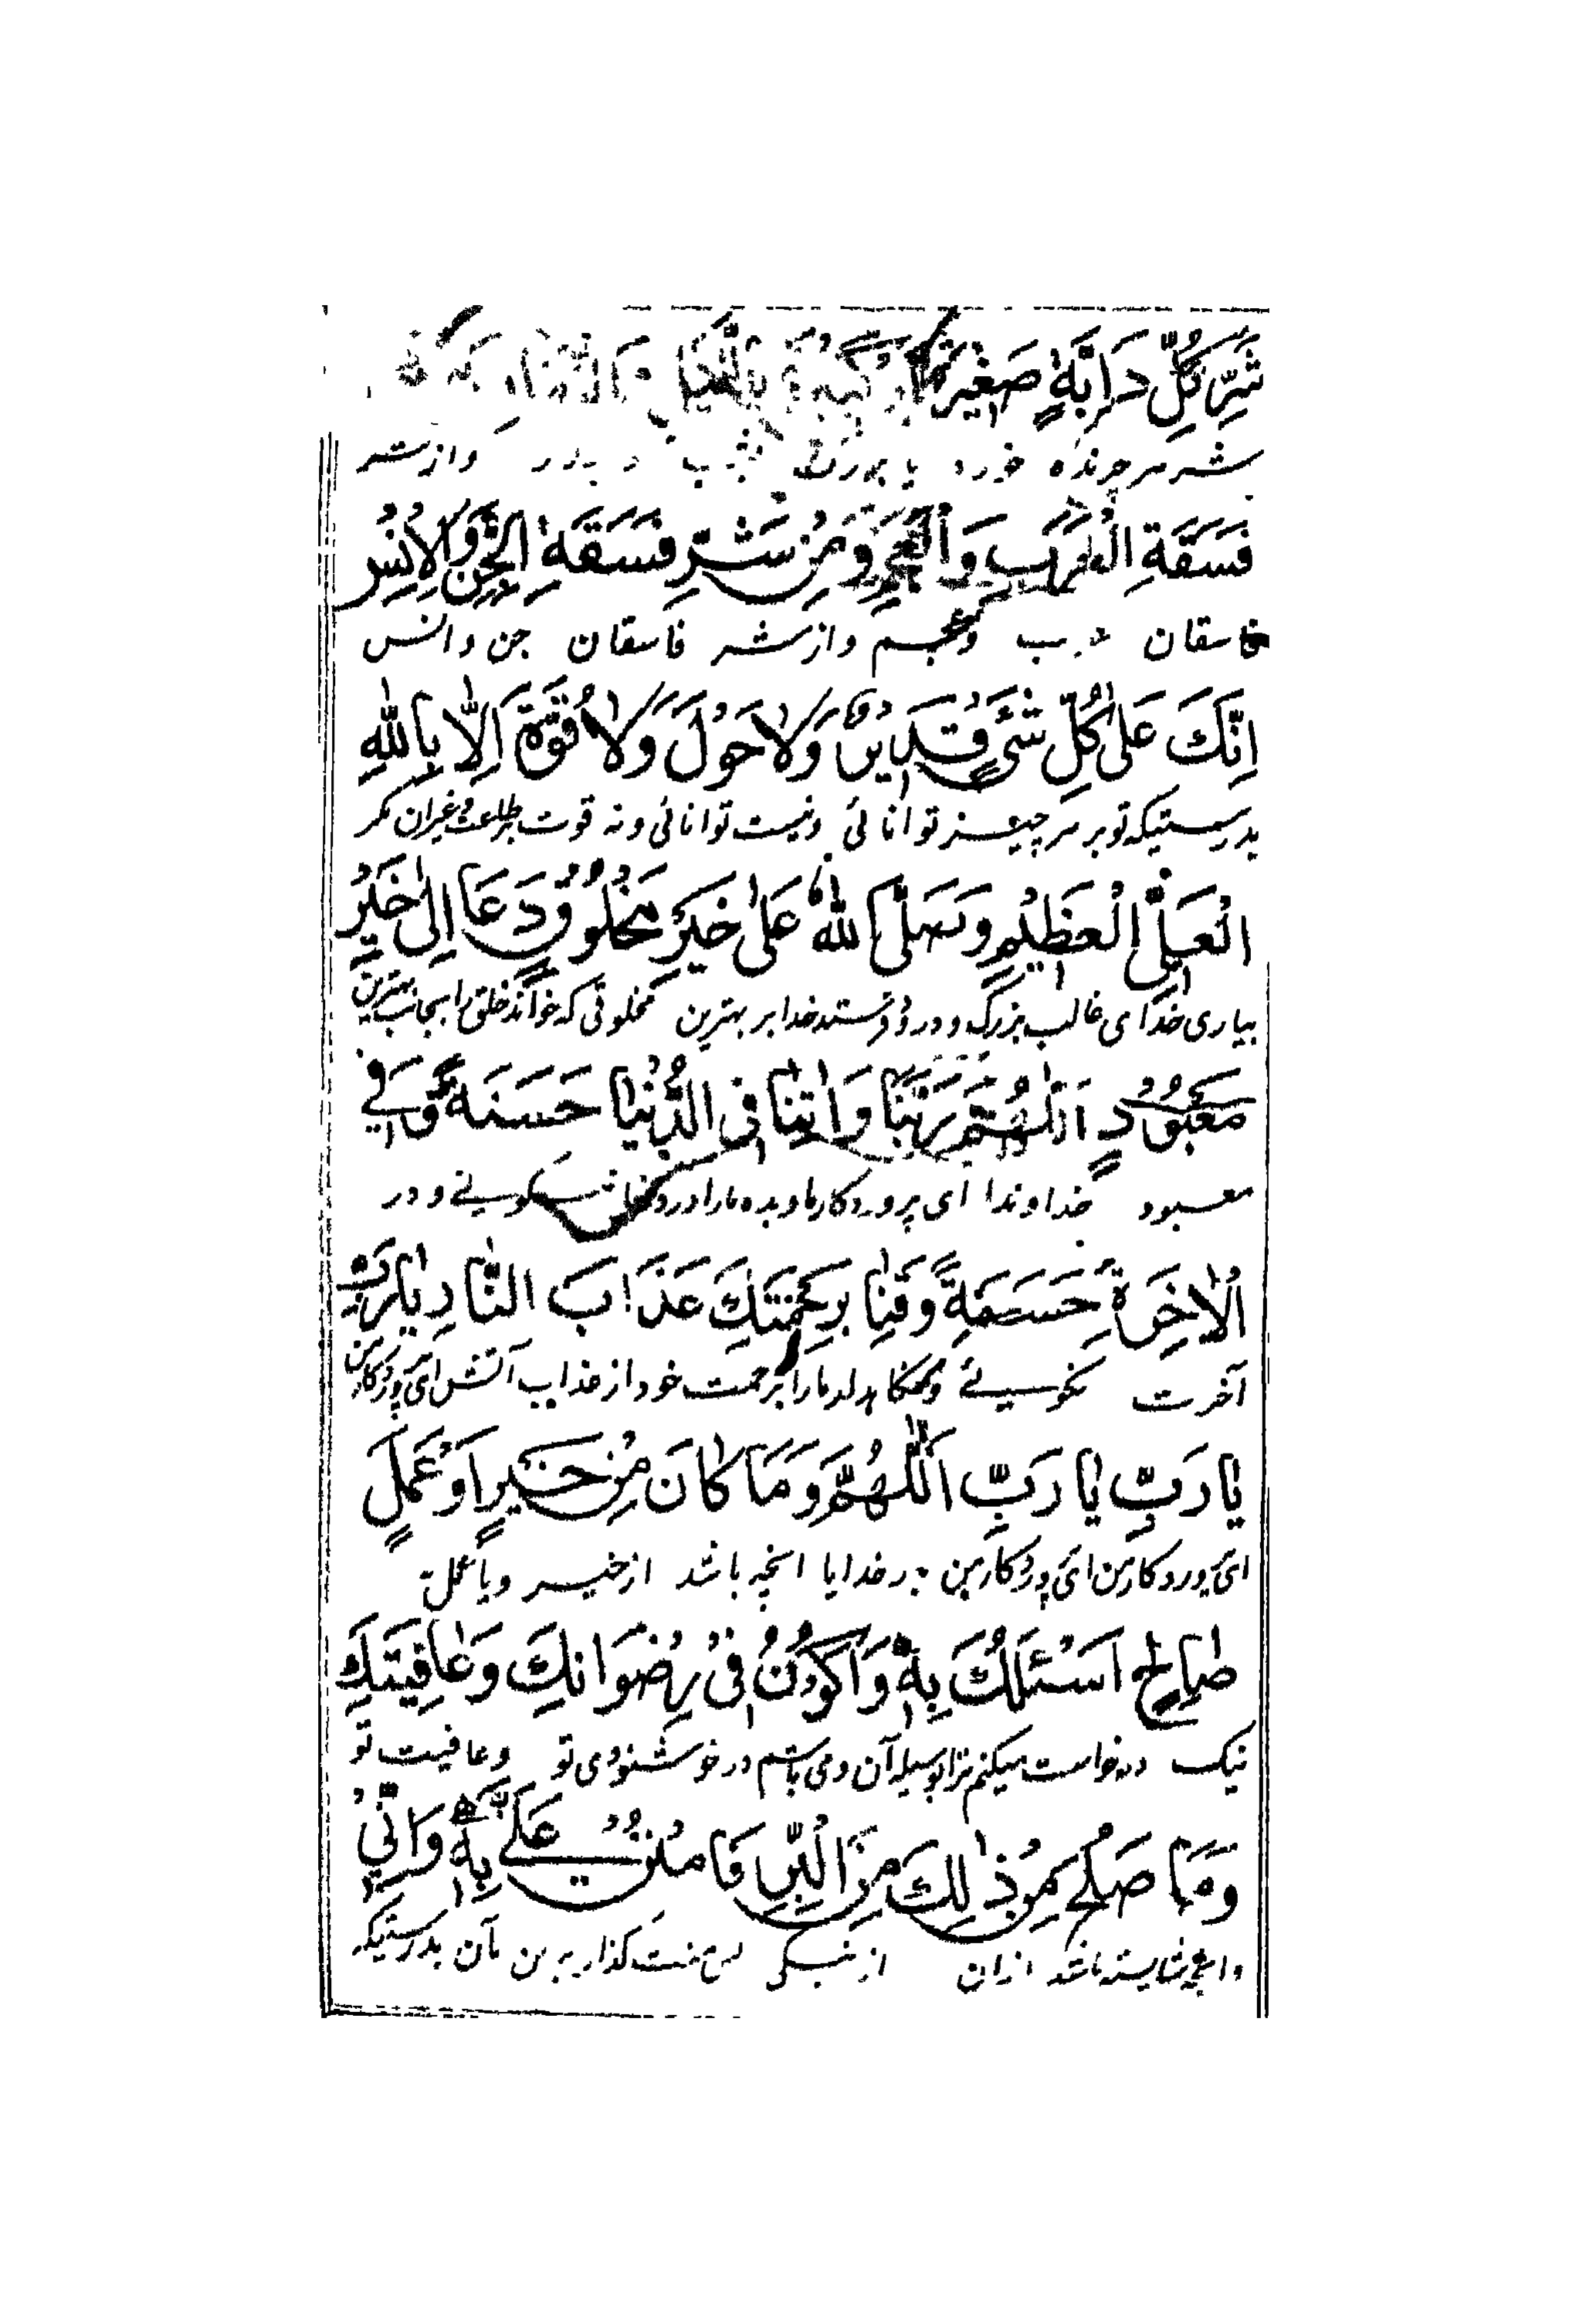 شَرِّ كُلِّ دَابَّةٍ صَغِيرَةٍ
شر هر چرنده خورد یا بزرگ بشب و بروز واز شر
فَسَقَةِ الْعَرَبِ وَالْعَجَمِ وَمِنْ شَرِّ فَسَقَةِ الْجِنِّ وَالْاِنْسِ
فاسقان عرب وعجم واز شر فاسقان جن وانس
اِنَّكَ عَلىٰ كُلِّ شَىْءٍ قَدِيْرٌ وَلَا حَوْلَ وَلَا قُوَّةَ اِلَّا بِاللّٰهِ
بدرستیکه تو بر هر چیز توانائی ونیست توانائی ونه قوت مگر
الْعَلِىِّ الْعَظِيْمِ وَصَلَّى اللّٰهُ عَلىٰ خَيْرِ مَخْلُوْقٍ دَعَا اِلىٰ خَيْرِ
بیاری خدای غالب بزرگ ودرود فرستد خدا بر بهترین مخلوقی که خواند خلق را بجانب بهترین
مَعْبُوْدٍ اَللّٰهُمَّ رَبَّنَا وَاٰتِنَا فِى الدُّنْيَا حَسَنَةً وَّفِي
معبود خداوندا ای پروردگار ما وبده ما را در نکوئی و در
الْاٰخِرَةِ حَسَنَةً وَّقِنَا بِرَحْمَتِكَ عَذَابَ النَّارِ يَارَبِّ
آخرت نکوئی ونگاهدار ما را برحمت خود از عذاب آتش ای پروردگار من
يَا رَبِّ يَا رَبِّ اَللّٰهُمَّ وَمَا كَانَ مِنْ خَيْرٍ اَوْ عَمَلٍ
ای پروردگار من ای پروردگار من خدایا انچه باشد از خیر ویا عمل
صَالِحٍ اَسْئَلُكَ بِهٖ وَاَكُوْنُ فِىْ رِضْوَانِكَ وَعَافِيَتِكَ
نیک درخواست میکنم ترا بوسیله آن ومی باشم در خوشنودی تو وعافیت تو
وَمَا صَلَحَ مِنْ ذٰلِكَ مِنَ الْبِرِّ فَامْنُنْ عَلَىَّ بِهٖ وَاِنِّيْ
وانچه شایسته باشد ازان از نیکی پس منت گذار بر من بآن بدرستیکه